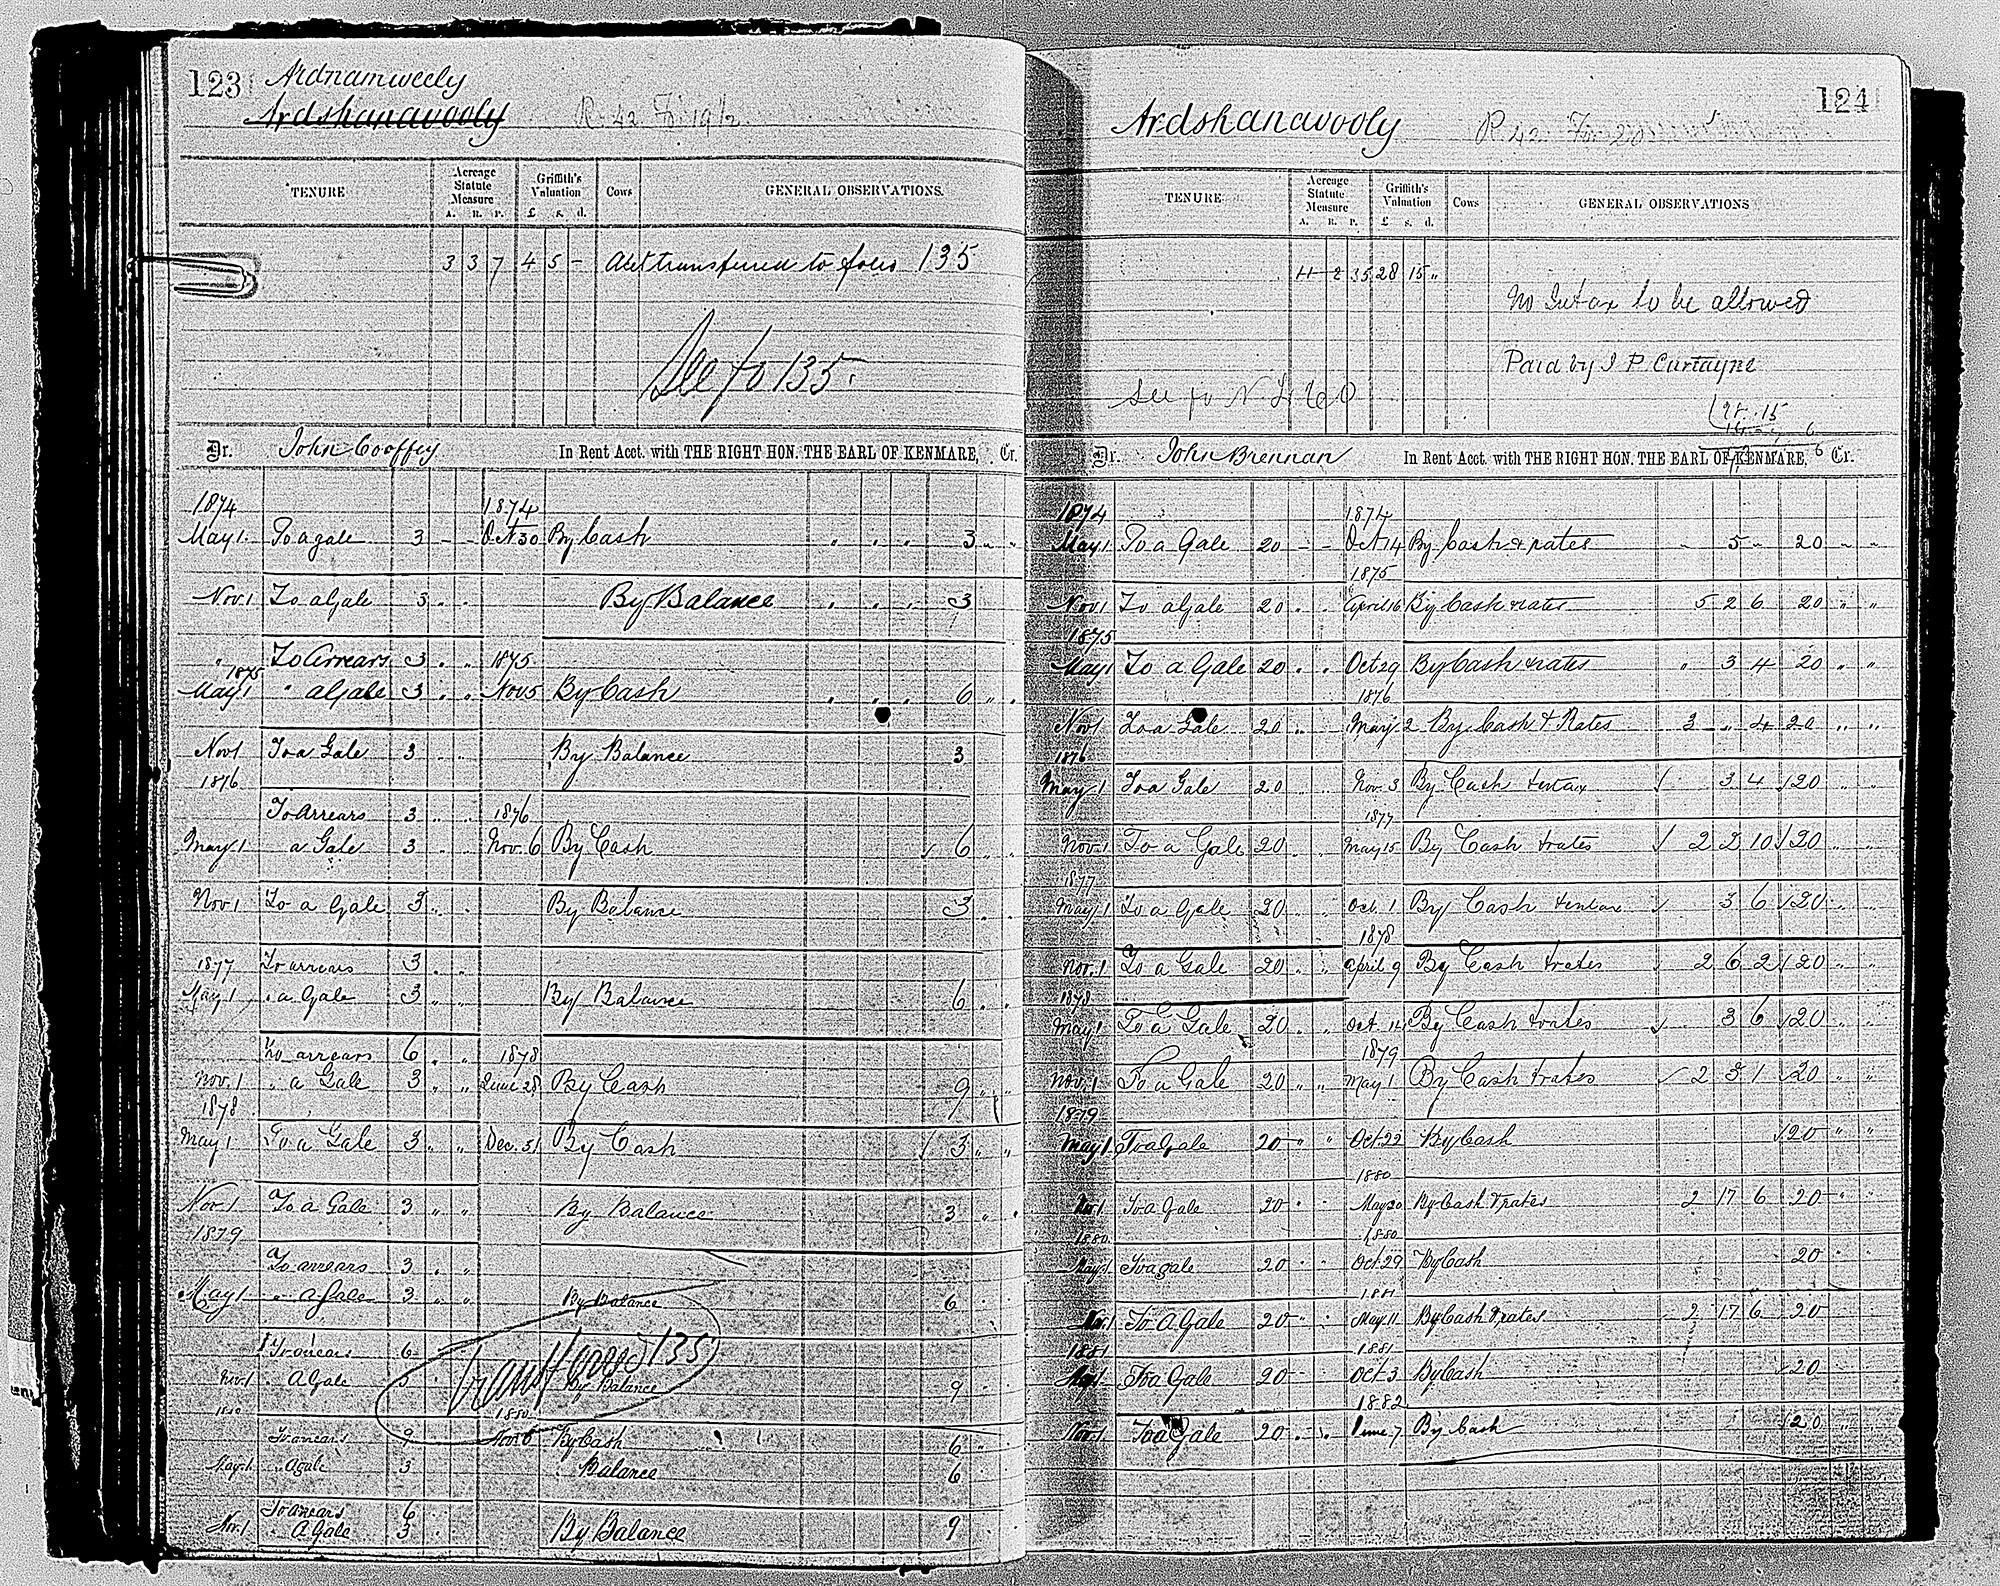 123 Ardnamweely
Ardshanavooly R. 42 Fo. 19 1/2
TENURE Acreage Statute Measure Griffith's Valuation Cows GENERAL OBSERVATIONS.
A. R. P. £ s. d.
3 3 7 4 5 - Acct transferred to folio 135
See fo 135
Dr. John Cooffey In Rent Acct. with THE RIGHT HON. THE EARL OF KENMARE, Cr.
1874 1874
May 1 To a gale 3 - - Oct 30 By Cash " " " 3 " "
Nov. 1 To a Gale 3 " " By Balance " " " 3
" To Arrears 3 " " 1875
1875
May 1 " a Gale 3 " " Nov 5 By Cash " " " 6 " "
Nov 1 To a Gale 3 " " By Balance 3
1876
To Arrears 3 " " 1876
May 1 a Gale 3 " " Nov. 6 By Cash √ 6 " "
Nov 1 To a Gale 3 " " By Balance 3 " "
1877 To arrears 3 " "
May 1 " a Gale 3 " " By Balance 6 " "
To arrears 6 " " 1878
Nov. 1 " a Gale 3 " " June 28 By Cash 9 " "
1878
May 1 To a Gale 3 " " Dec. 31 By Cash √ 3 " "
Nov. 1 To a Gale 3 " " By Balance 3 " "
1879
To arrears 3 " "
May 1 " a Gale 3 " " By Balance 6 "
To arrears 6
transferred 135
Nov. 1 " A Gale 3 By Balance 9
1880 1880
To arrears 9 Nov 6 By Cash 6 "
May 1 " A gale 3 " Balance 6
To arrears 6
Nov. 1 " A Gale 3 " By Balance 9
124
Ardshanavooly R 42 Fo 20
TENURE Acreage Statute Measure Griffith's Valuation Cows GENERAL OBSERVATIONS
A. R. P. £ s. d.
11 2 35 28 15 "
No Intax to be allowed
Paid by J P. Curtayne
See fo N. L. 60
Dr. John Brennan In Rent Acct. with THE RIGHT HON. THE EARL OF KENMARE, Cr.
1874 1874
May 1 To a Gale 20 - - Oct 14 By Cash & rates " 5 " 20 " "
1875
Nov 1 To a Gale 20 " " April 16 By Cash & rates 5 2 6 20 " "
1875
May 1 To a Gale 20 " " Oct 29 By Cash & rates " 3 4 20 " "
1876
Nov 1 To a Gale 20 " " May 2 By Cash & Rates 3 " 4 20 " "
1876
May 1 To a Gale 20 " " Nov. 3 By Cash & intax √ 3 4 √20 " "
1877
Nov. 1 To a Gale 20 " " May 15 By Cash & rates √ 2 2 10 √20 " "
1877
May 1 To a Gale 20 " " Oct. 1 By Cash & intax √ 3 6 √20 " "
1878
Nov. 1 To a Gale 20 " " April 9 By Cash & rates √ 2 6 2 √20 " "
1878
May 1 To a Gale 20 " " Oct. 12 By Cash & rates √ 3 6 √20 " "
1879
Nov. 1 To a Gale 20 " " May 1 By Cash & rates √ 2 3 1 √20 " "
1879
May 1 To a Gale 20 " " Oct. 22 By Cash √20 " "
1880
Nov. 1 To a Gale 20 " " May 20 By Cash & rates 2 17 6 20 " "
1880 1880
May 1 To a gale 20 " " Oct. 29 By Cash 20 "
1881
Nov. 1 To A Gale 20 " " May 11 By Cash & rates 2 17 6 20 "
1881 1881
May 1 To a Gale 20 Oct 3 By Cash √20 "
1882
Nov. 1 To a Gale 20 " " June 7 By Cash √20 "